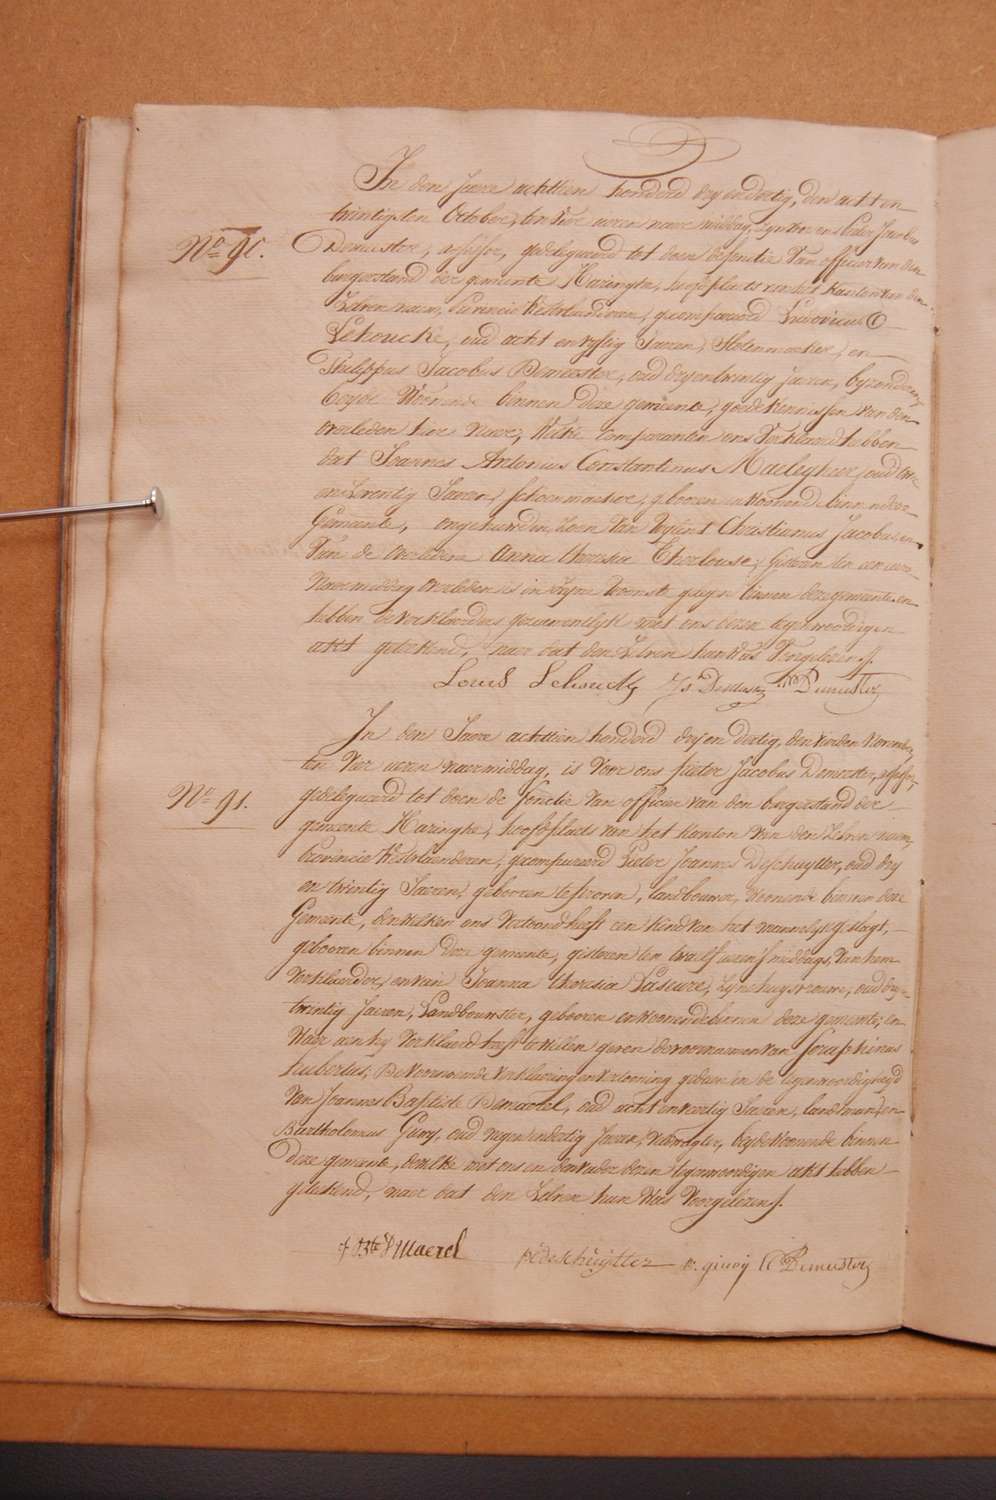 In den Jaere achttien honderd dry en dertig, den acht en
twintigsten October, ten vier uren naer middag, zyn voor ons Pieter Jacobus
No 90.
Demeester, assessor, gedelegueerd tot doen de fonctie van officier van den
burgerstand der gemeente Haringhe, hoofdplaets van het kanton van den
Zelven naem, Provincie Westvlaenderen, gecompareerd Ludovicus
Lehoucke, oud acht en vyftig Jaeren, Stoelenmaeker, en
Philippus Jacobus Demeester, oud dryentwintig Jaeren, byzondere,
beyde Woonende binnen deze gemeente, goede kennissen van den
overleden hier naer, Welke comparanten ons Verklaerd hebben
dat Joannes Antonius Constantinus Maeleghier, oud
en twentig Jaeren, schoenmaeker, gebooren en woonende binnen deze
Gemeente, ongehuwden Zoon van Christianus Jacobus en
Van de overledene Anna theresia, gisteren ten een uren
Voormiddag overleden is in Zyne Woonste gelegen binnen deze gemeente, en
hebben de verklaerders gezamentlyk met ons dezen tegenwoordigen
akt geteekend, naer dat den Zelven hun was Voorgelezen.
Louis Lehoucke Demeester
In den Jaere achttien honderd dry en dertig, den vierden November
ten vier uren naermiddag, is voor ons Pieter Jacobus Demeester, assessor,
No 91.
gedelegueerd tot doen de fonctie van officier van den burgerstand der
gemeente Haringhe, hoofdplaets van het kanton van den Zelven naem,
Provincie Westvlaenderen, gecompareerd Pieter Joannes Deschuytter, oud dry
en twintig Jaeren, gebooren te, landbouwer, Woonende binnen deze
Gemeente, den welken ons Vertoond heeft een kind van het mannelyk geslagt,
gebooren binnen deze gemeente, gisteren ten twalf uren smiddags, Van hem
Verklaerder, en van Joanna theresia Laseure, Zyne huysvrouwe, oud dry en
twintig Jaeren, Landbouwster, gebooren en woonende binnen deze gemeente, en
Waer aen hy Verklaerd heeft te willen geven de voornaemen van Seraphinus
hubertus, De Voornoemde verklaering en vertooning gedaen in de tegenwoordigheyd
Van Joannes Baptiste Demaerel, oud acht en veertig Jaeren, landman, en
Bartholomeus Giwy, oud negen en dertig Jaeren, beyde Woonende binnen
Deze gemeente, dewelke met ons en den vader dezen tegenwoordigen akt hebben
geteekend, naer dat den Zelven hun Was Voorgelezen.
J Bte D Maerel p: deschuytter B: giwy Demeester